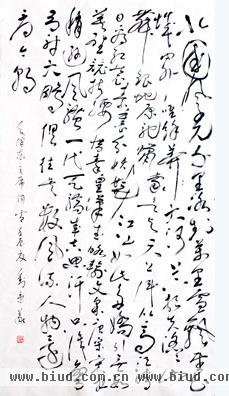 北国风光千里冰封万里雪飘望长
城内外惟余莽莽大河上下顿失滔滔山
舞银蛇原驰蜡象欲与天公试比高须晴
日看红装素裹分外妖娆江山如此多娇引无数
英雄竞折腰惜秦皇汉武略输文采唐宗宋
祖稍逊风骚一代天骄成吉思汗只识弯弓
射大雕俱往矣数风流人物还
看今朝
毛泽东主席词雪壬辰
www.biud.com.cn
www.biud.com.cn